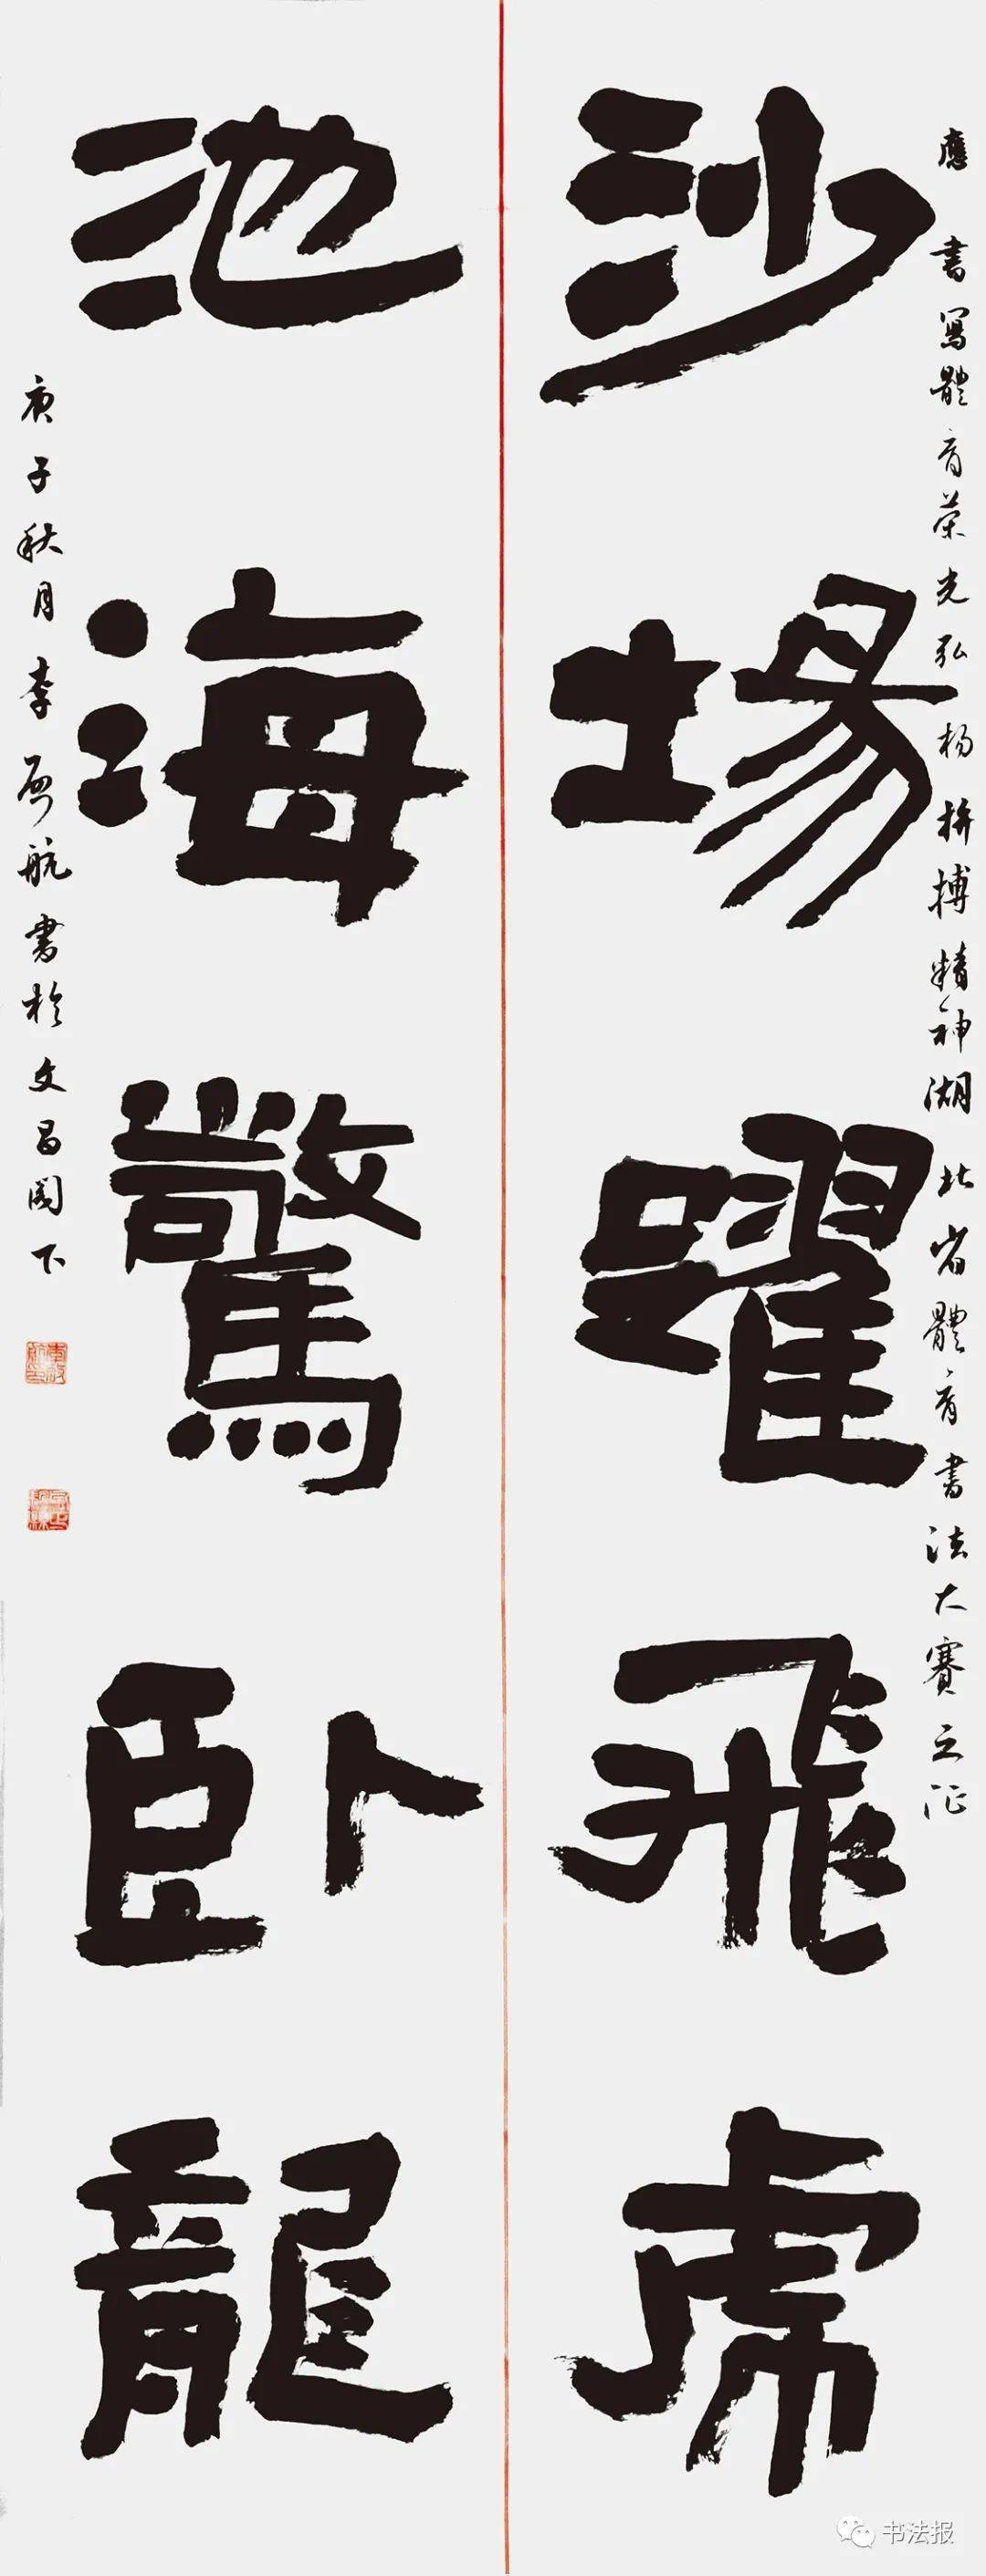 應書寫體育榮光弘楊拚搏精神湖北省體育書法大賽之征
沙場躍飛虎
池海驚卧龍
庚子秋月李啓航書於文昌閣下
书法报